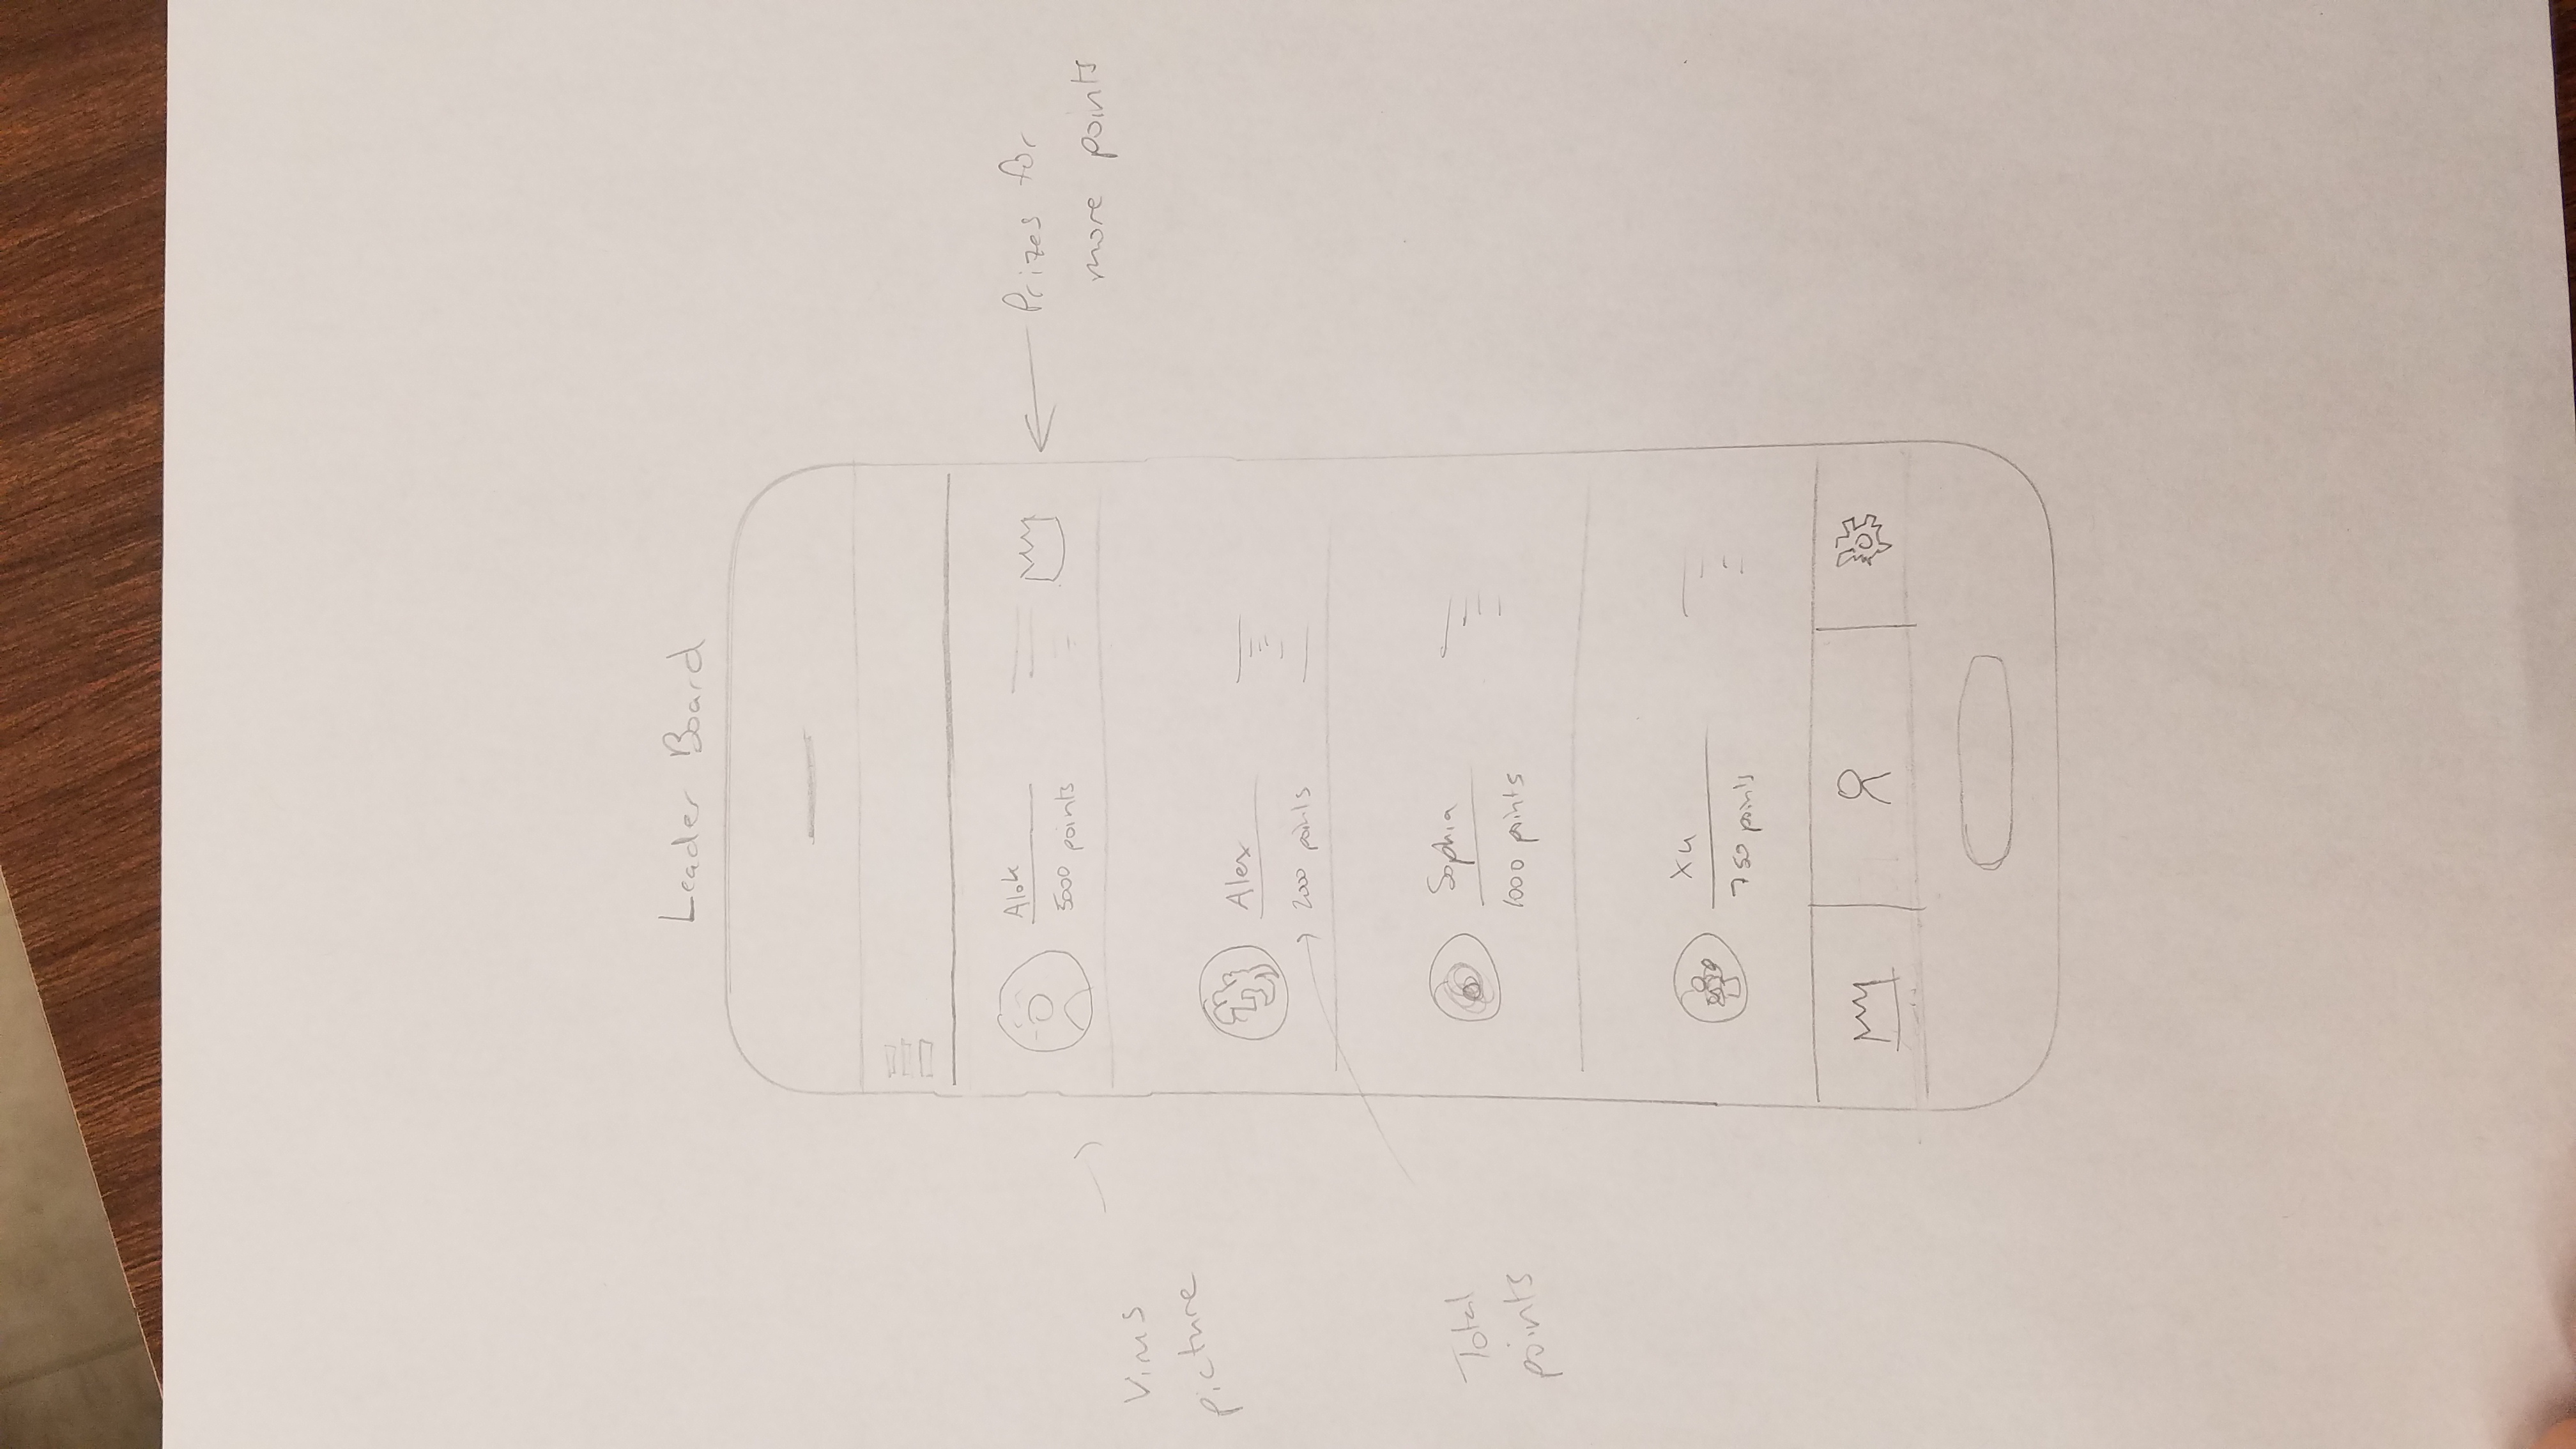 Leader Board
Alok
5000 points
Prizes for
more points
Virus
picture
Alex
2000 points
Sophia
1000 points
Total
points
Xu
750 points